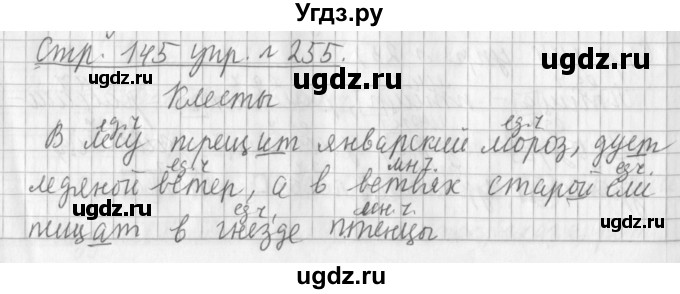 Угдз.ру
Стр. 145 упр. № 255.
Клесты
ед.ч ед.ч
В лесу трещит январский мороз, дует
ед.ч мн.ч. ед.ч
ледяной ветер, а в ветвях старой ели
ед.ч. мн.ч.
пищат в гнезде птенцы
ugdz.ru
ugdz.ru
ugdz.ru
ugdz.ru
ugdz.ru
ugdz.ru
ugdz.ru
ugdz.ru